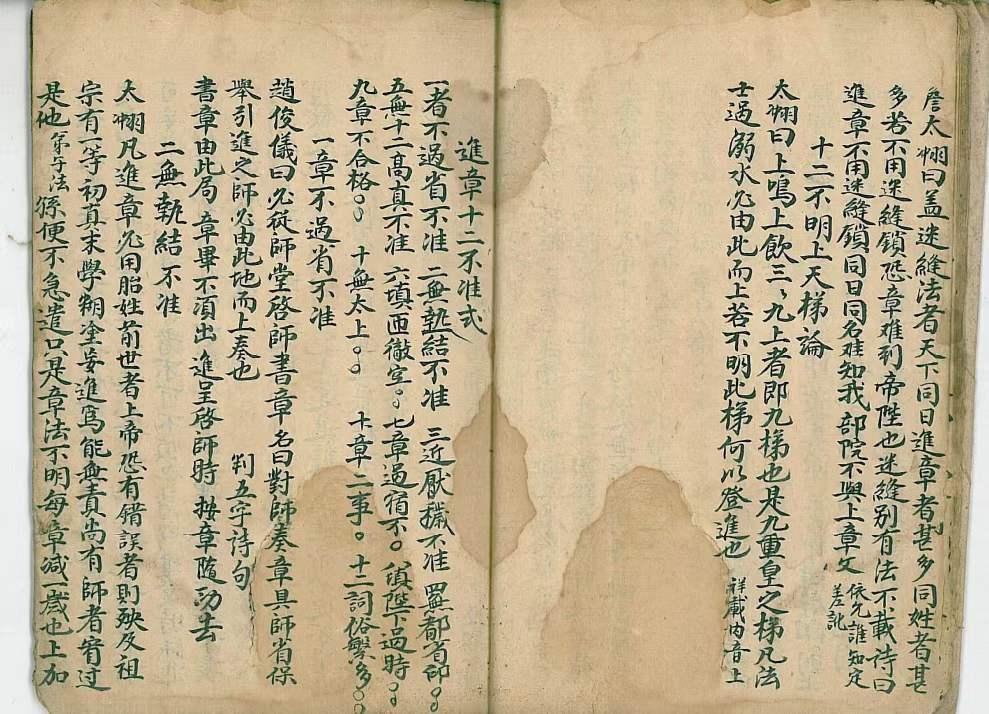 詹太翊曰盖迷縫法者天下同日進章者甚多同姓者甚
多若不用迷縫鎖恐章难到帝陛也迷縫別有法不載诗曰
進章不用迷縫鎖同日同名难知我部院不與上章文依允誰知定差訛
十二不明上天梯論
太翊曰上鳴上飲三〻九上者即九梯也是九重皇之梯凡法
士過溺水必由此而上若不明此梯何以登進也祥載内音上
進章十二不准式
一者不過省不准 二無執結不准 三近厭穢不准 四無都省印〻
五無十二高真不准 六填西徹空〻 七章過宿不〻 八填陛下過時〻
九章不合格〻 十無太上〻 十一章二事〻 十二詞俗繁多〻
一章不過省不准
趙俊儀曰必從師堂啓師書章名曰對師奏章具師省保
舉引進之師必由此地而上奏也 判五字诗句
書章由此局 章畢不須出 進呈啓師時 按章隨功去
二無執結不准
太翊凡進章必用胎姓前世者上帝恐有錯誤者則殃及祖
宗有一等初真末學糊塗妄進焉能無責尚有師者宥过
是他弟子法孫便不急遣口是章法不明每章減一歲也上加